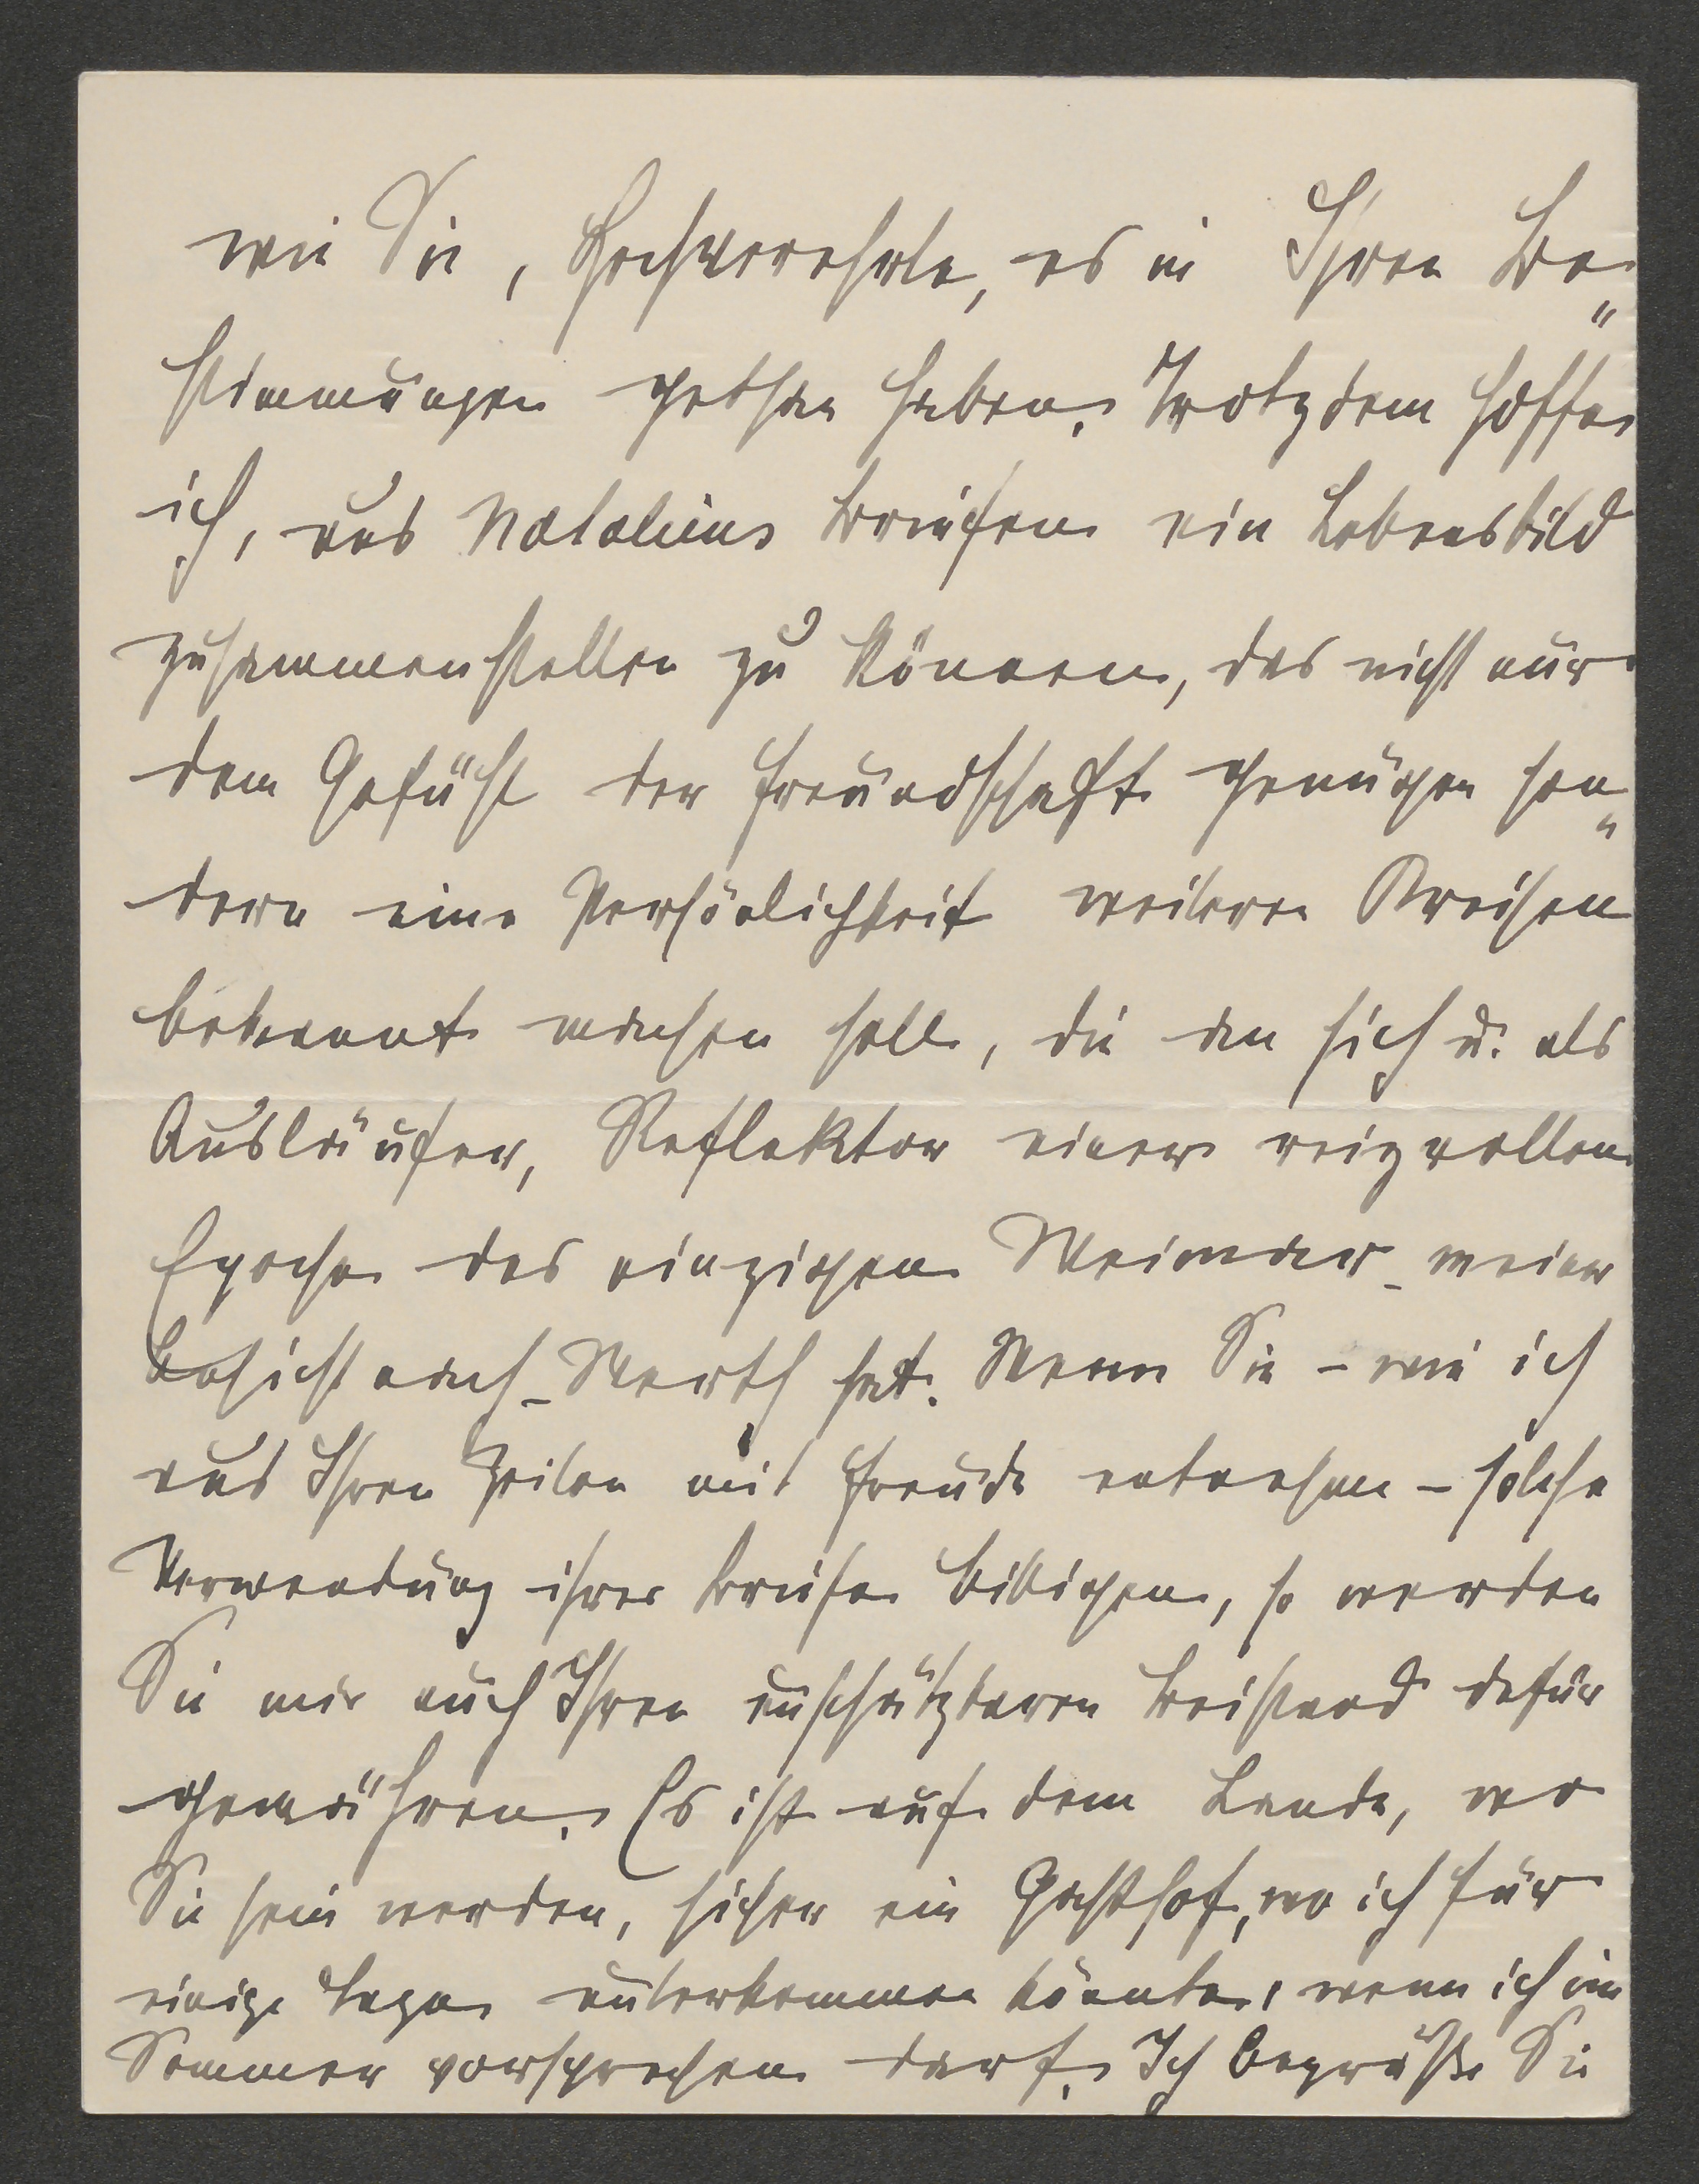 wie Sie, Hochverehrte, es in Ihren Be„
stimmungen gethan haben. Trotzdem hoffe
ich, aus Nataliens Briefen ein Lebensbild
zusammenstellen zu können, das nicht nur
dem Gefühl der Freundschaft genügen son„
dern eine Persönlichkeit weiteren Kreisen
bekannt machen soll, die an sich u. als
Ausläufer, Reflektor einer reizvollen
Epoche des einzigen Weimar – meiner
Ansicht nach – Werth hat. Wenn Sie – wie ich
aus Ihren Zeilen mit Freude entnehme – solche
Verwendung ihrer Briefe billigen, so werden
Sie mir auch Ihren unschätzbaren Beistand dafür
gewähren. Es ist auf dem Lande, wo
Sie sein werden, sicher ein Gasthof, wo ich für
einige Tage unterkommen könnte, wenn ich im
Sommer vorsprechen darf. Ich begrüße Sie